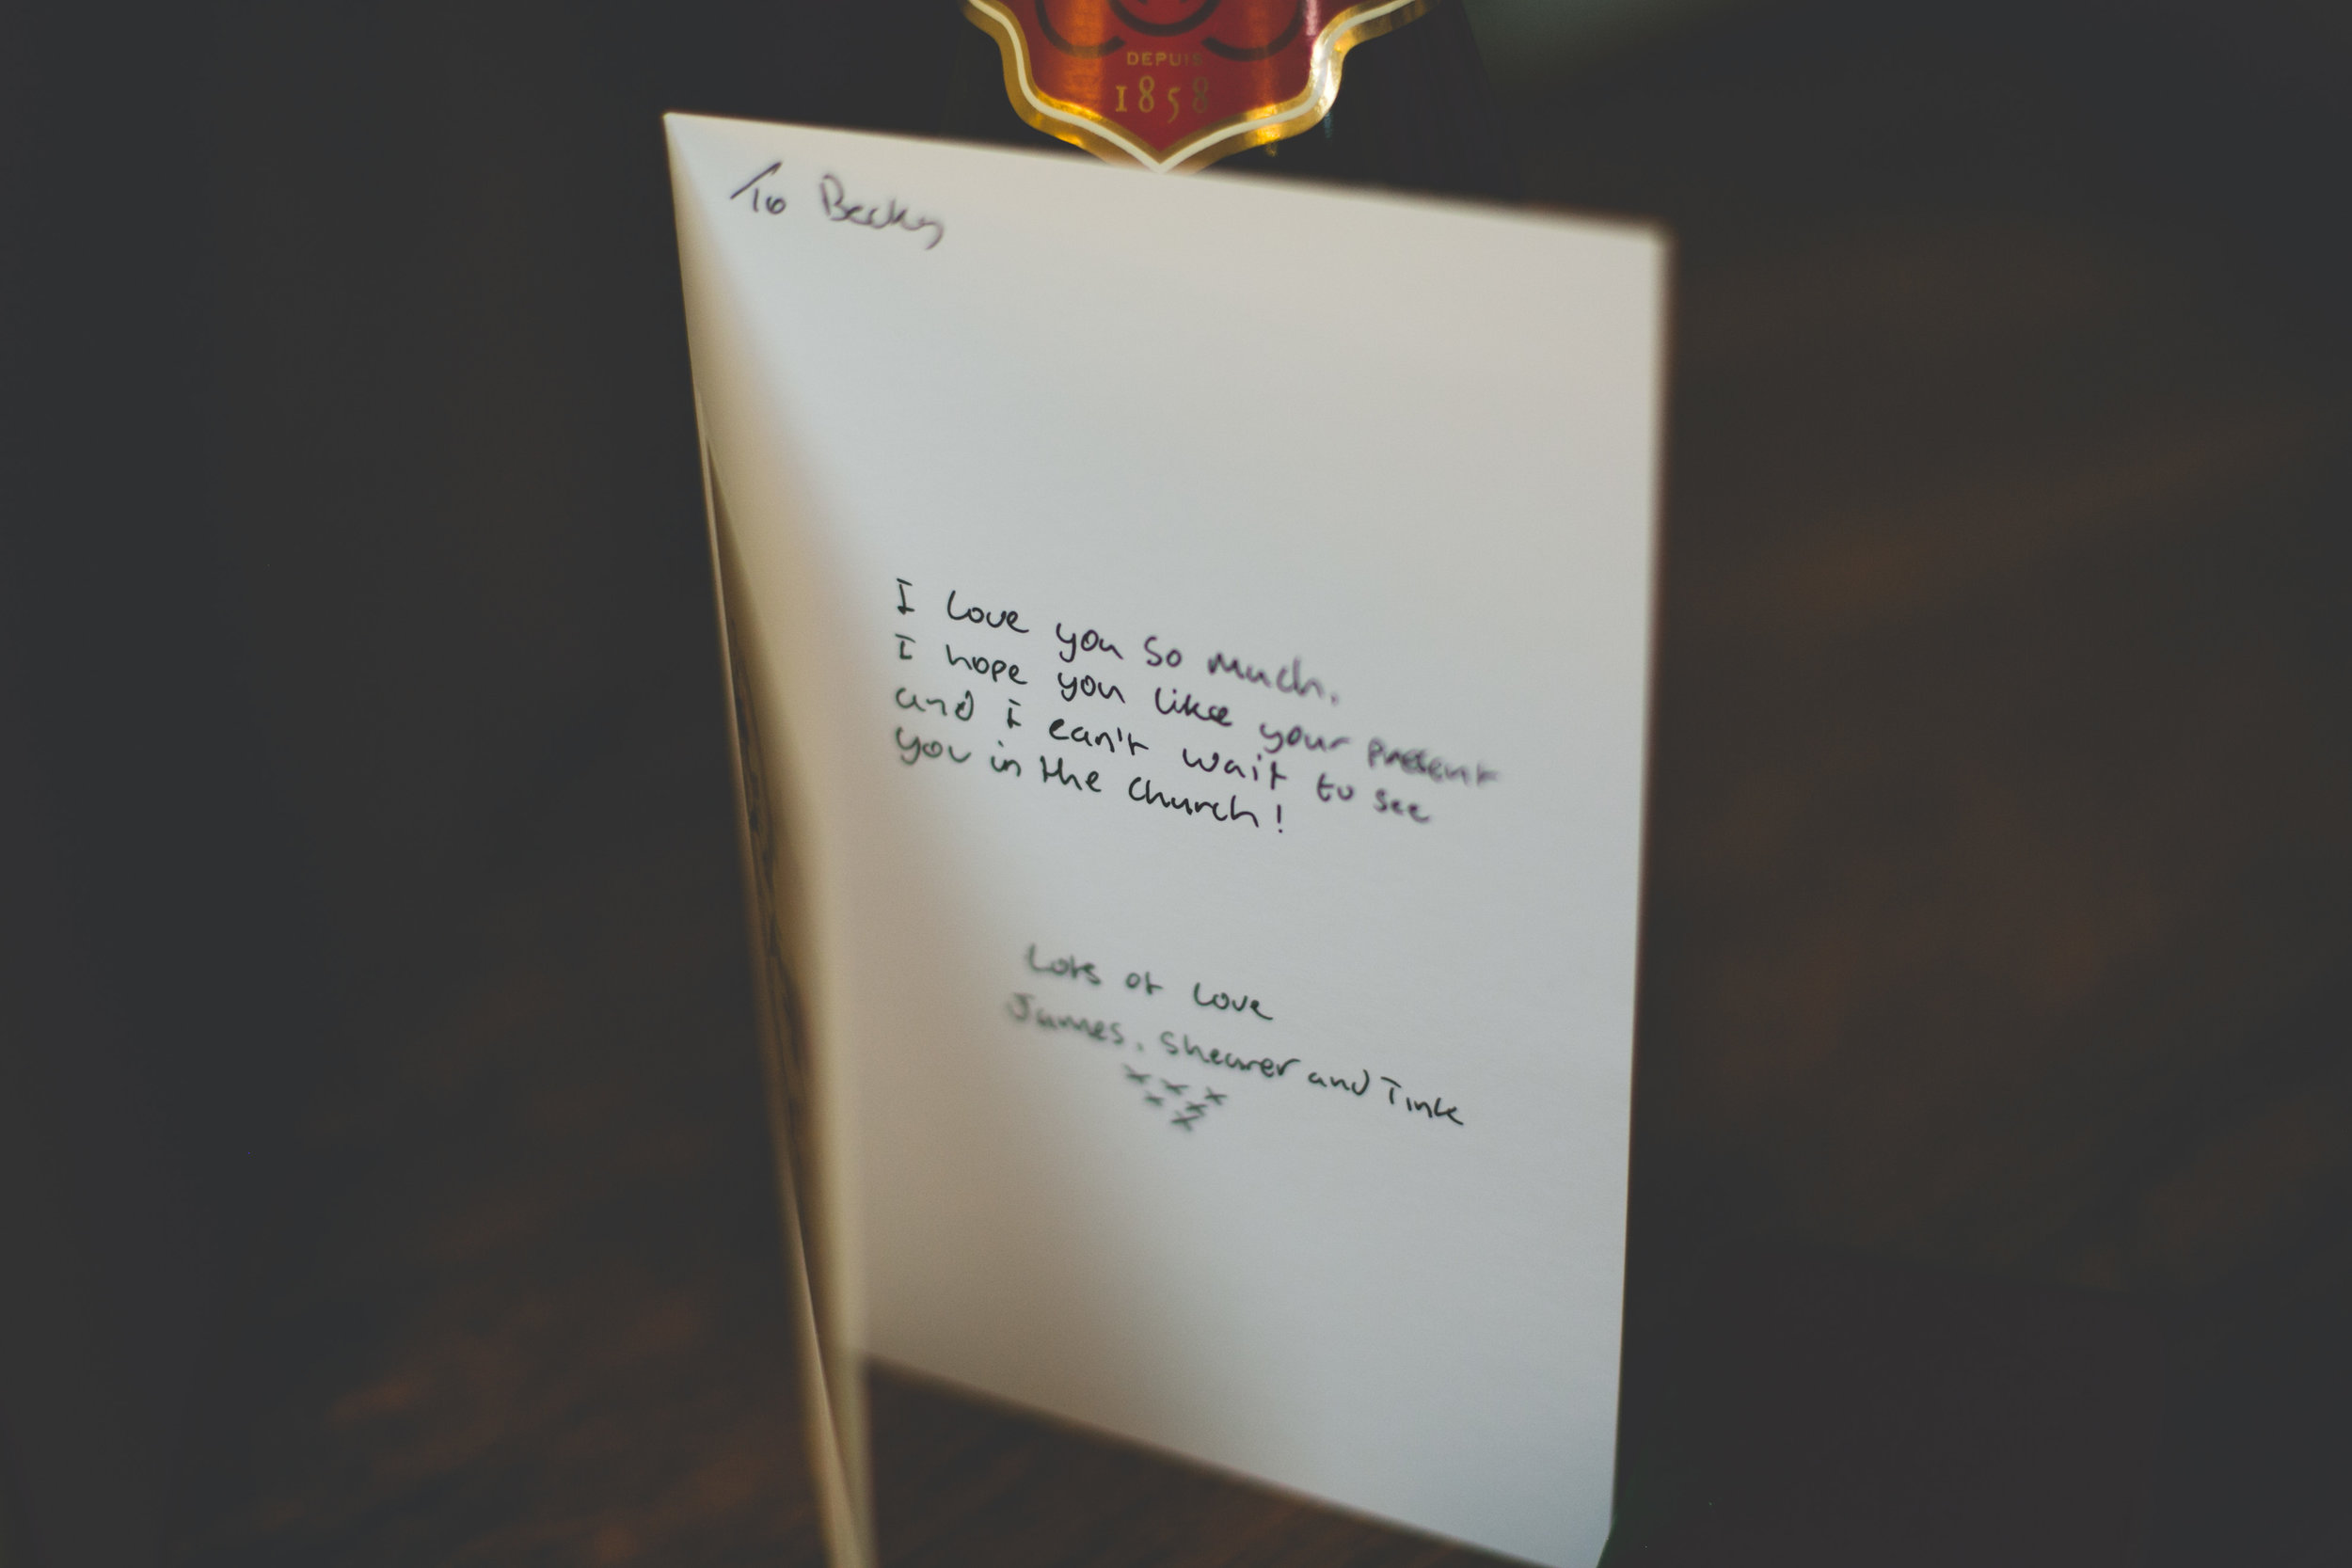 DEPUIS
1858
To Becky
I love you so much.
I hope you like your present
and i can't wait to see
you in the church!
Lots of love
James, Shearer and Tink
x x x
x x
x